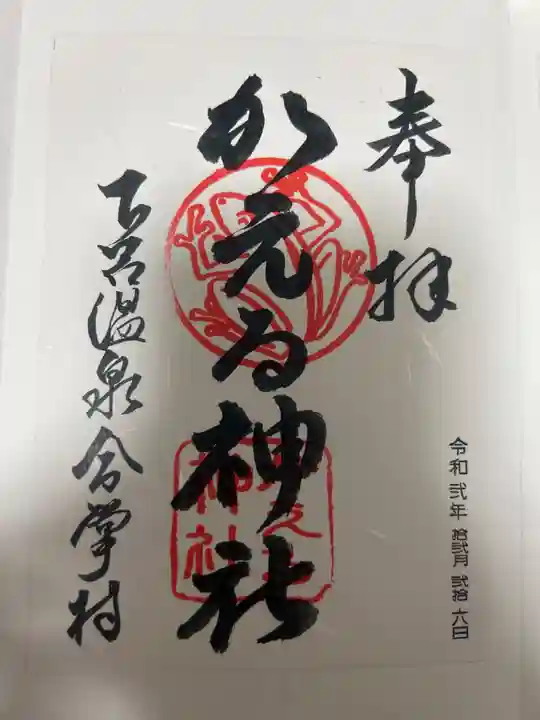 奉拝
令和弐年 拾弐月 弐拾六日
加元る神社
下呂温泉合掌村